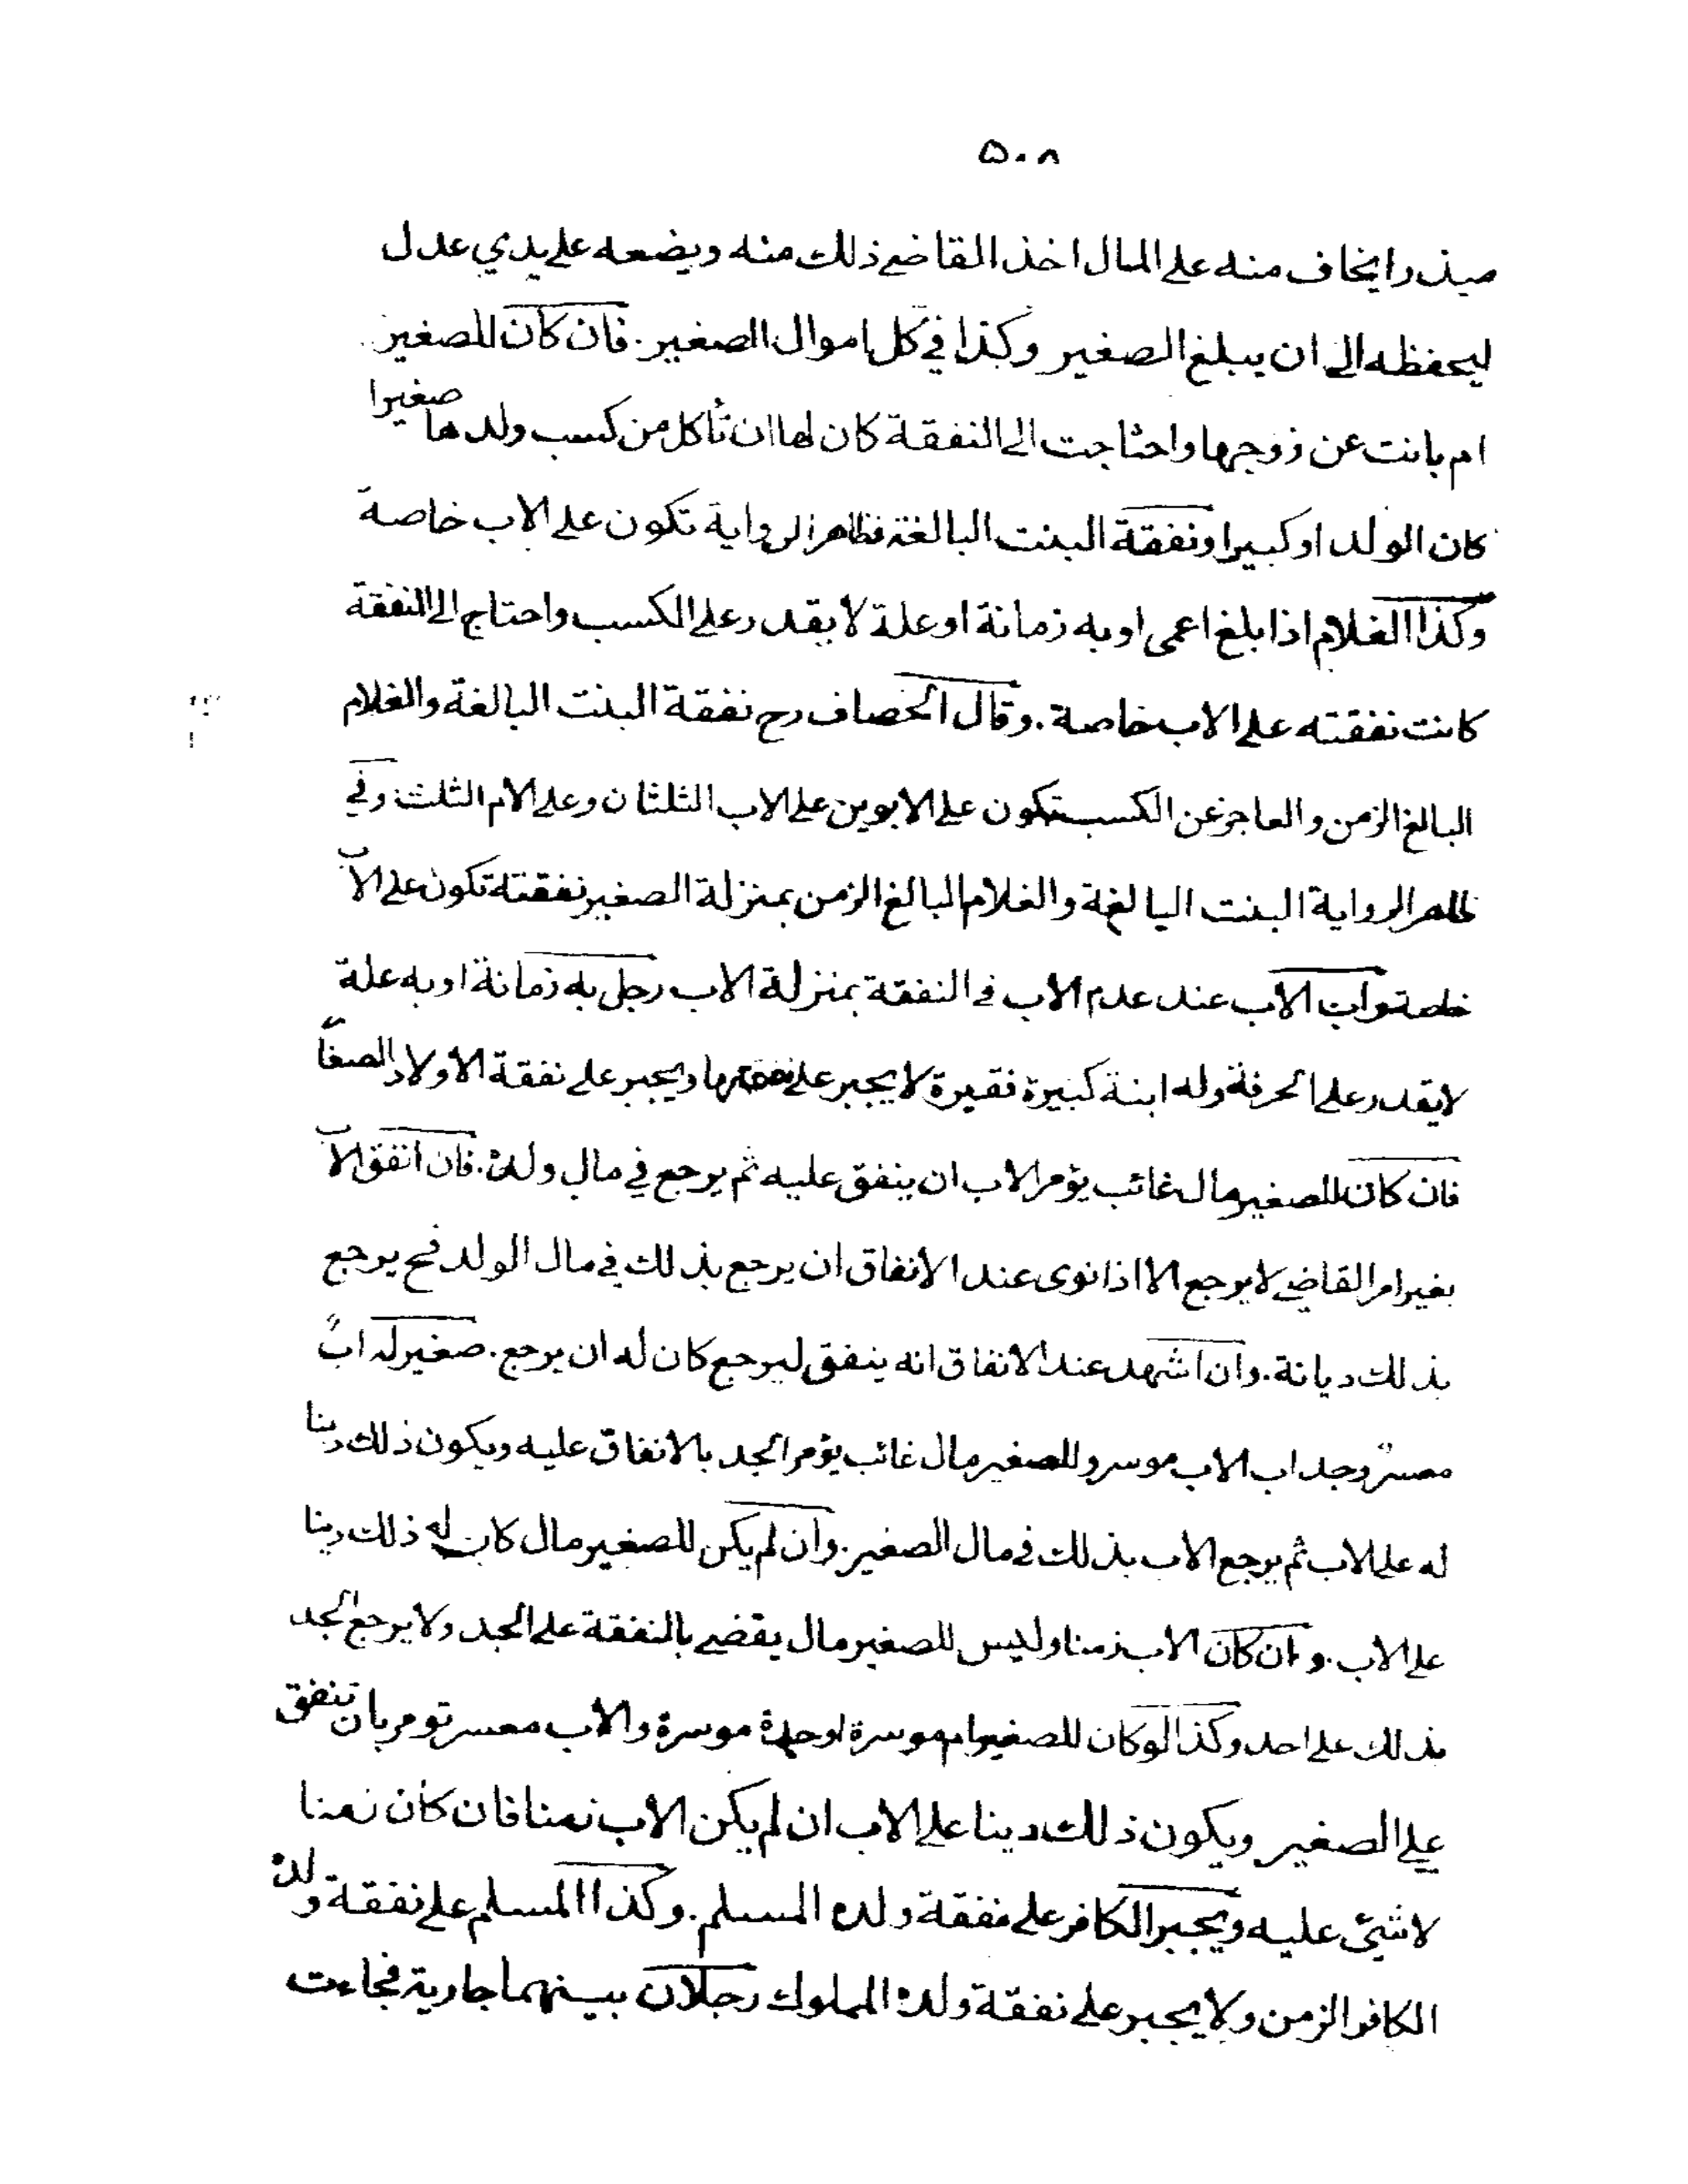 ٥٠٨
مبذرا يخاف منه على المال اخذ القاضي ذلك منه ويضعه على يدي عدل
ليحفظه الى ان يبلغ الصغير وكذا في كل اموال الصغير . فان كان للصغير
ام بانت عن زوجها واحتاجت الى النفقة كان لها ان تأكل من كسب ولدها صغيرا
كان الولد او كبيرا ونفقة البنت البالغة فظاهر الرواية تكون على الاب خاصة
وكذا الغلام اذا بلغ اعمى او به زمانة او علة لا يقدر على الكسب واحتاج الى النفقة
كانت نفقته على الاب خاصة . وقال الخصاف رح نفقة البنت البالغة والغلام
البالغ الزمن والعاجز عن الكسب تكون على الابوين على الاب الثلثان وعلى الام الثلث وفي
ظاهر الرواية البنت البالغة والغلام البالغ الزمن بمنزلة الصغير نفقته تكون على الاب
خاصة واب الاب عند عدم الاب في النفقة بمنزلة الاب رجل به زمانة او به علة
لا يقدر على الحرفة وله ابنة كبيرة فقيرة لا يجبر على نفقتها ويجبر على نفقة الاولاد الصغا
فان كان للصغير مال غائب يؤمر الاب ان ينفق عليه ثم يرجع في مال ولده . فان انفق الاب
بغير امر القاضي لا يرجع الا اذا نوى عند الانفاق ان يرجع بذلك في مال الولد فح يرجع
بذلك ديانة . وان اشهد عند الانفاق انه ينفق ليرجع كان له ان يرجع . صغير له اب
معسر وجد اب الاب موسر وللصغير مال غائب يؤمر الجد بالانفاق عليه ويكون ذلك دينا
له على الاب ثم يرجع الاب بذلك في مال الصغير . وان لم يكن للصغير مال كان له ذلك دينا
على الاب . وان كان الاب زمنا وليس للصغير مال يقضي بالنفقة على الجد ولا يرجع الجد
بذلك على احد وكذا لو كان للصغير ام موسرة او جدة موسرة والاب معسر تومر بان تنفق
على الصغير ويكون ذلك دينا على الاب ان لم يكن الاب زمنا فان كان زمنا
لا شيئ عليه ويجبر الكافر على نفقة ولده المسلم . وكذا المسلم على نفقة ولده
الكافر الزمن ولا يجبر على نفقة ولده المملوك رجلان بينهما جارية فجاءت